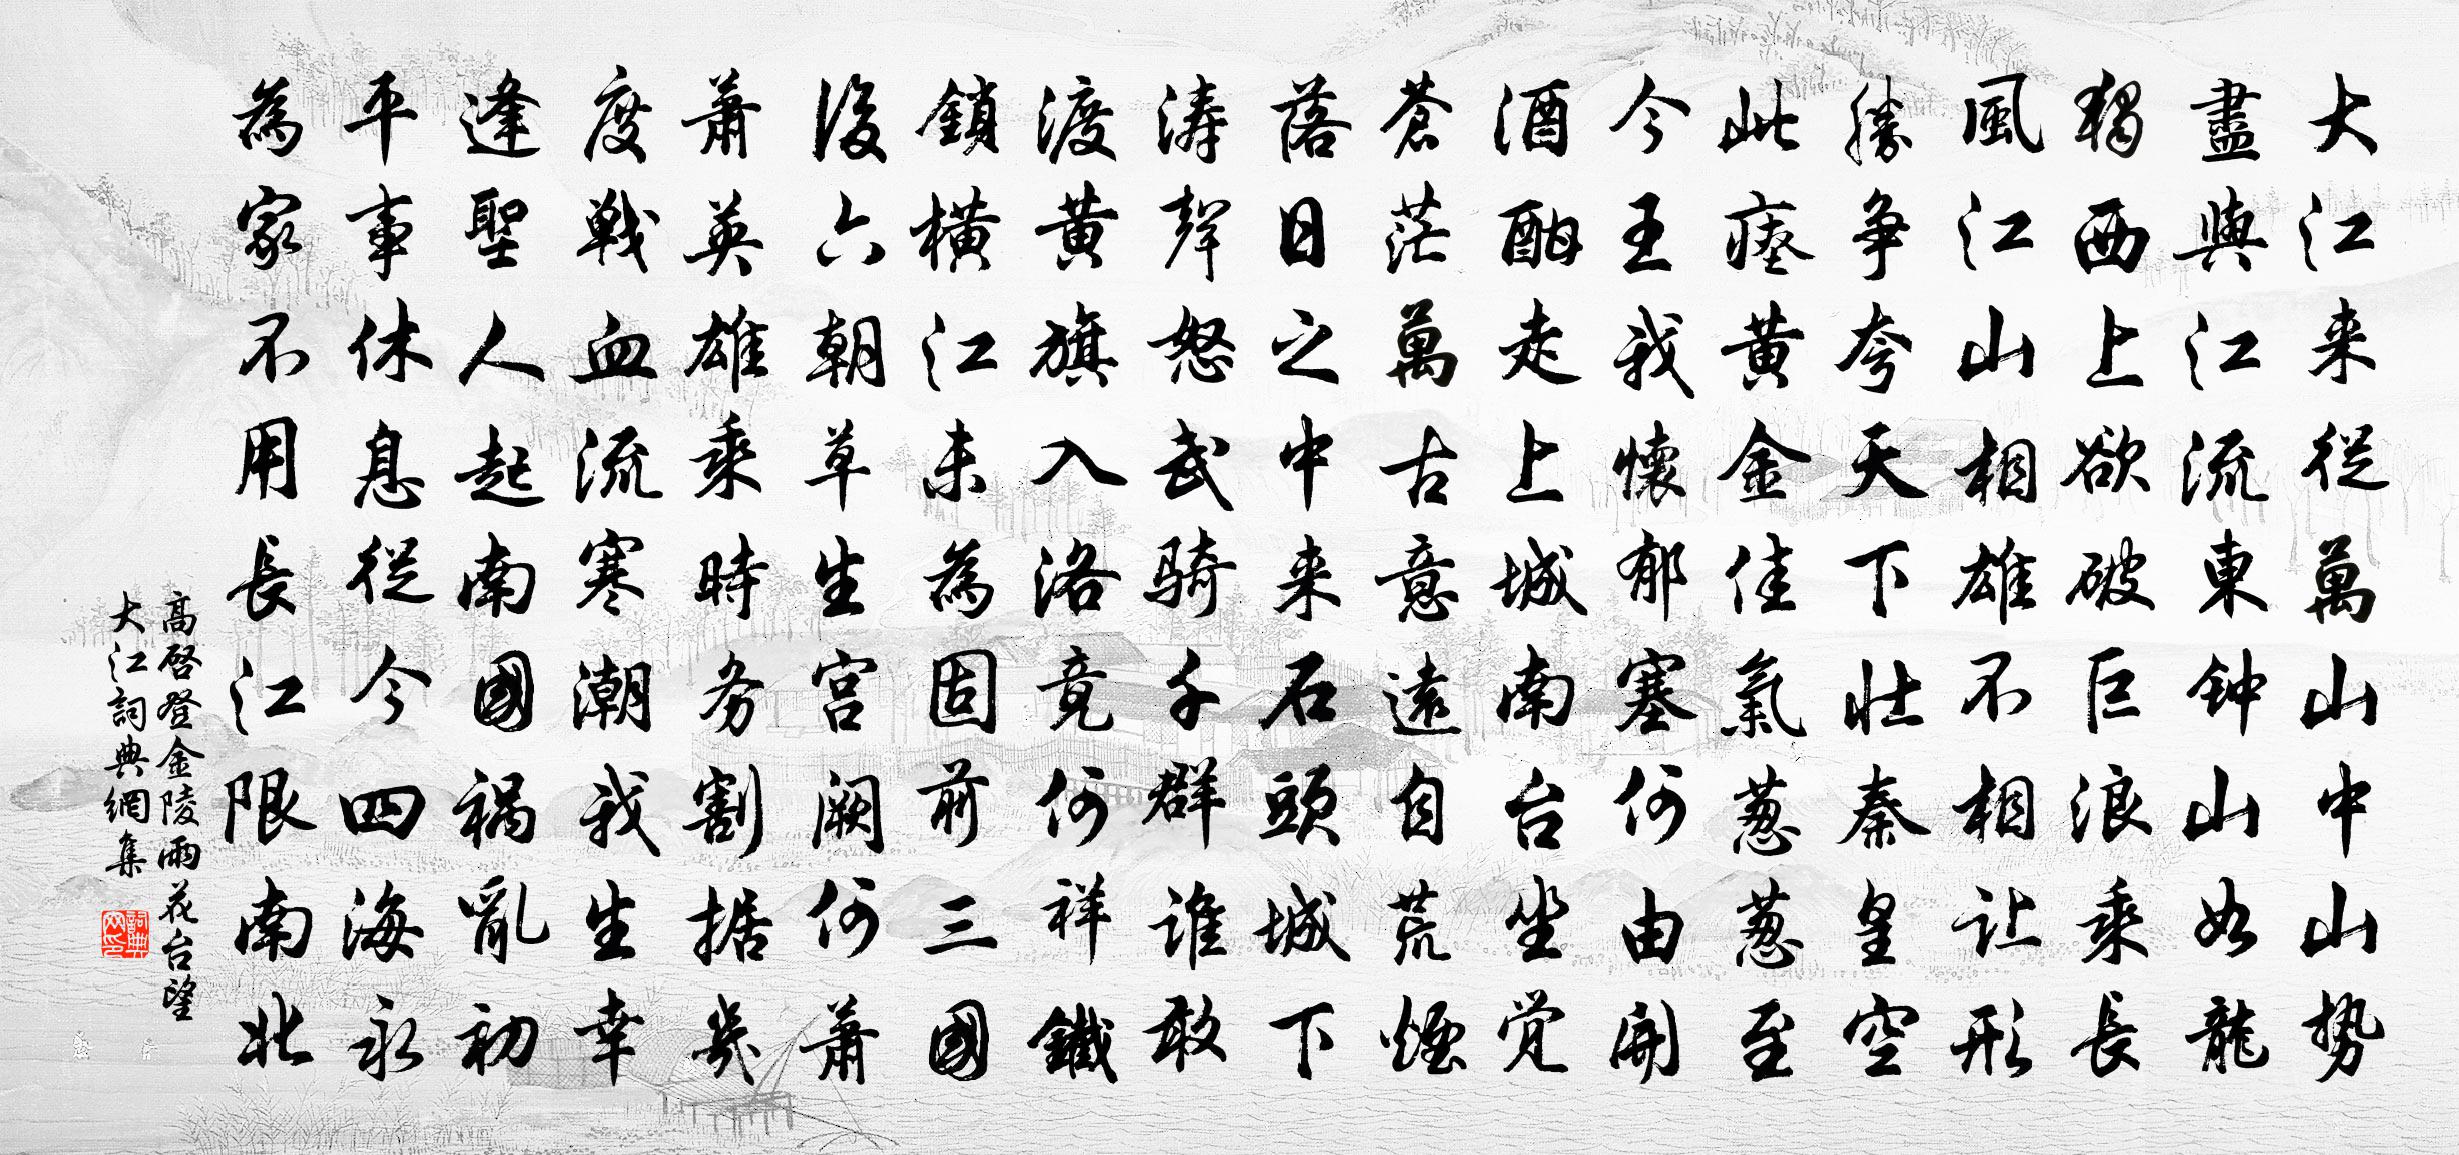 大江来從萬山中山势
盡與江流東钟山如龍
獨西上欲破巨浪乘長
風江山相雄不相让形
勝争夸天下壮秦皇空
此瘗黄金佳氣葱葱至
今王我懷郁塞何由開
酒酣走上城南台坐觉
蒼茫萬古意遠自荒煙
落日之中来石頭城下
涛聲怒武骑千群谁敢
渡黄旗入洛竟何祥鐵
鎖橫江未為固前三國
後六朝草生宫阙何蕭
蕭英雄乘時务割据幾
度戰血流寒潮我生幸
逢聖人起南國祸亂初
平事休息從今四海永
為家不用長江限南北
高啓登金陵雨花台望
大江詞典網集
詞典网印